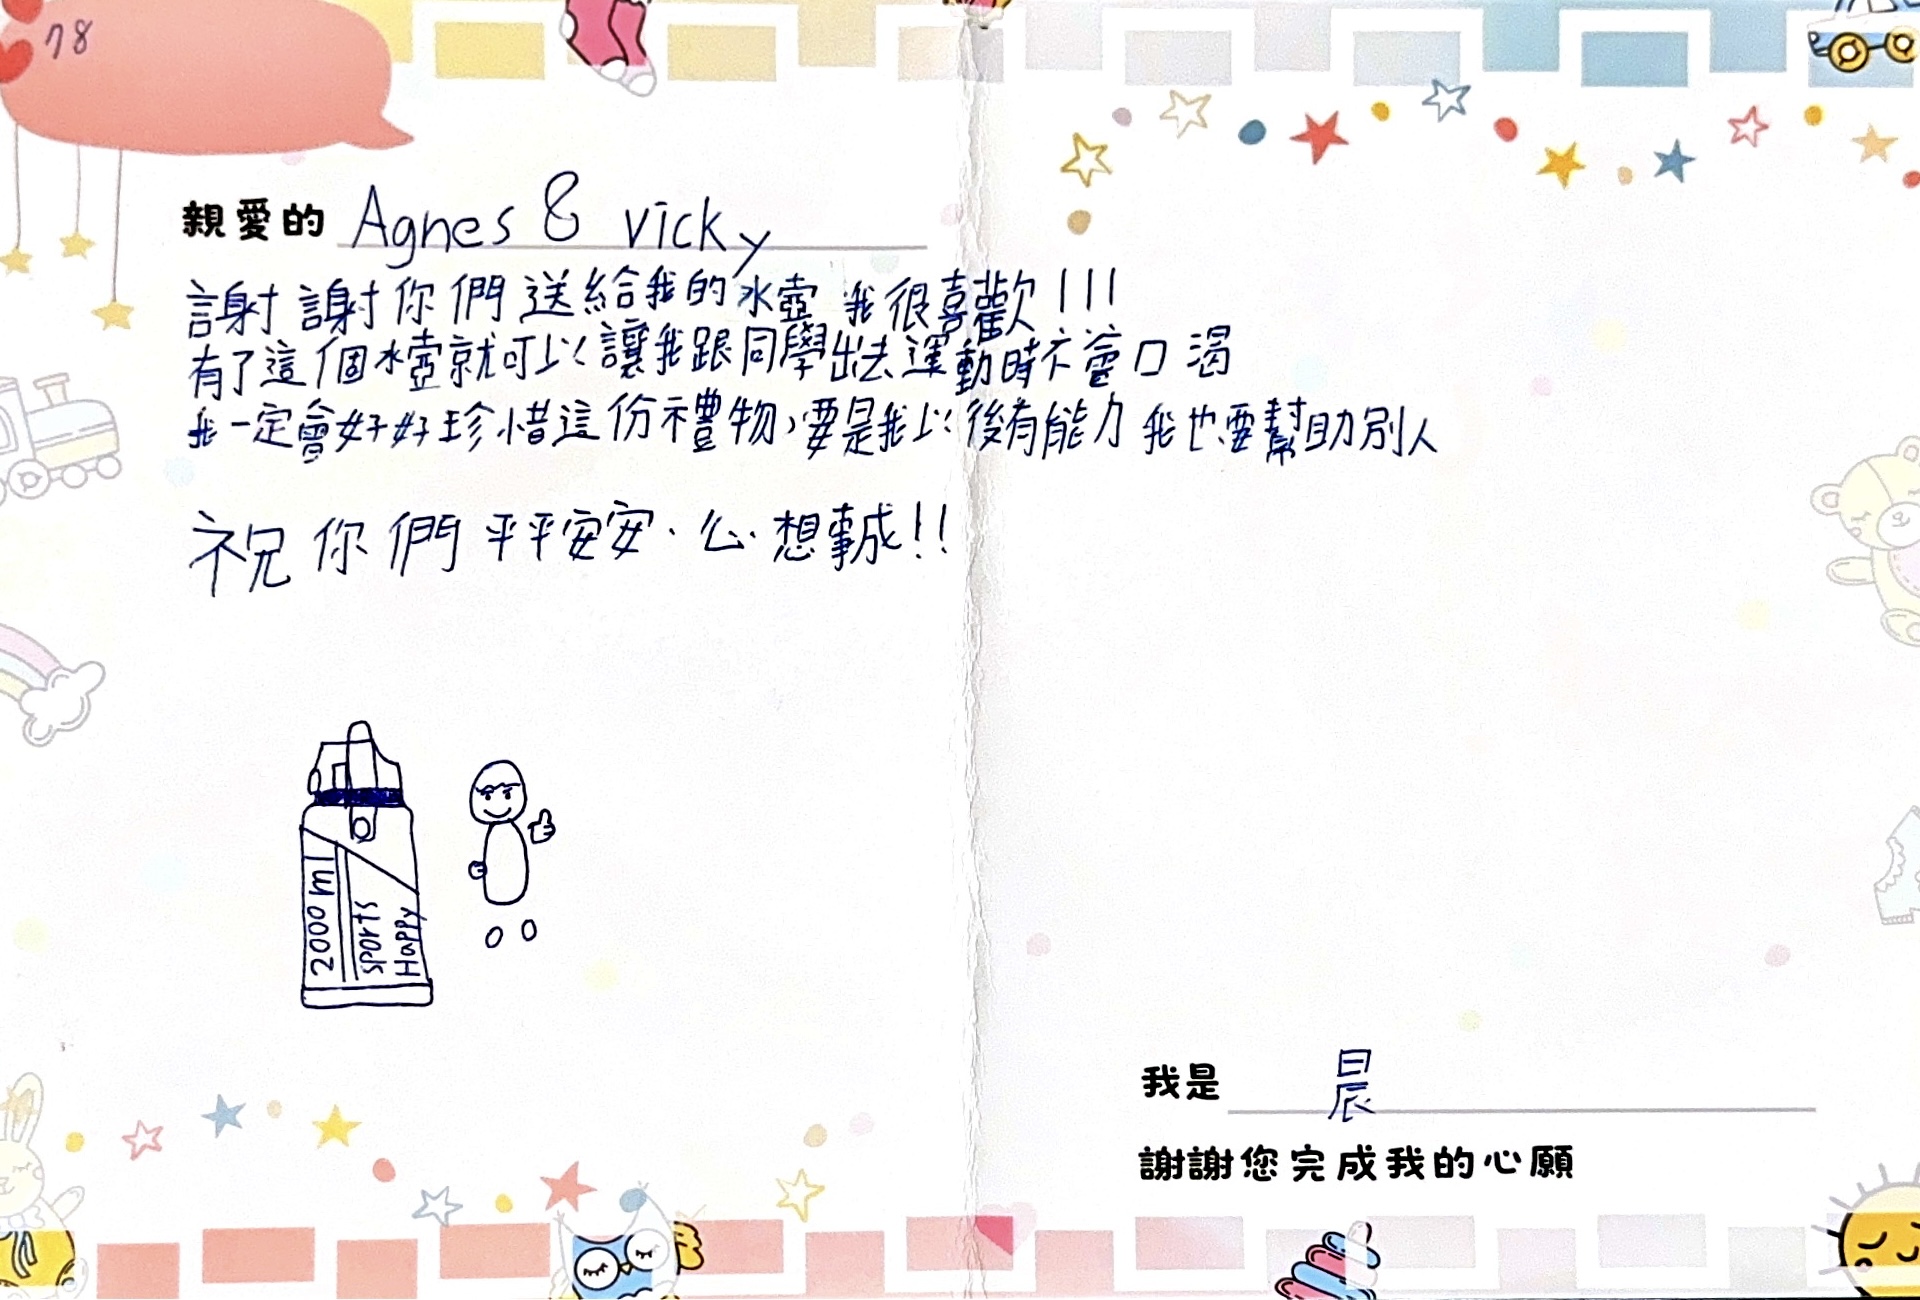 78
親愛的 Agnes & vicky
謝謝你們送給我的水壺 我很喜歡!!!
有了這個水壺就可以讓我跟同學出去運動時不會口渴
我一定會好好珍惜這份禮物，要是我以後有能力我也要幫助別人
祝你們平平安安、心想事誠!!
2000 ml
sports
Happy
我是 晨
謝謝您完成我的心願